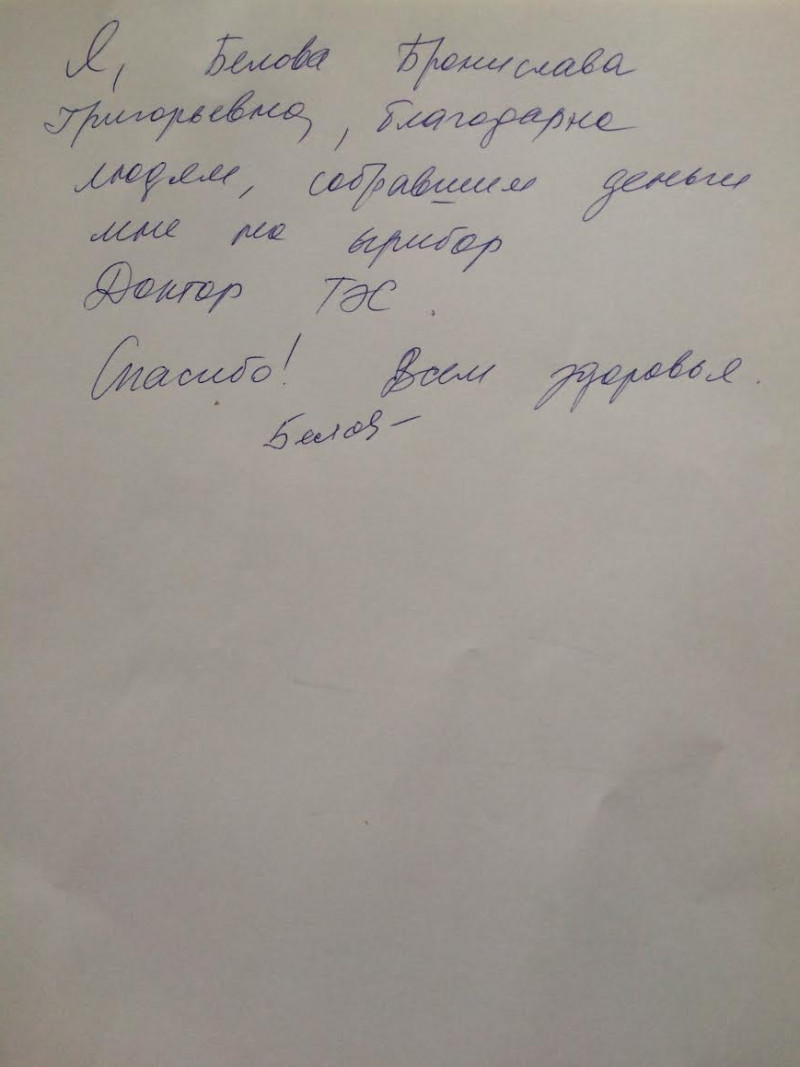 Я, Белова Бронислава
Григорьевна, благодарна
людям, собравшим деньги
мне на прибор
Доктор ТЭС.
Спасибо! Всем здоровья.
Белов